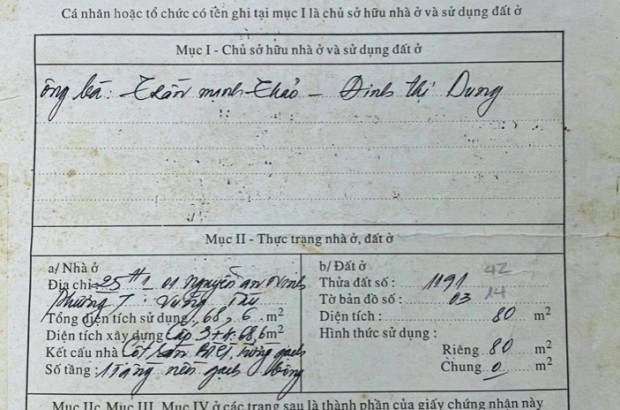 Cá nhân hoặc tổ chức có tên ghi tại mục I là chủ sở hữu nhà ở và sử dụng đất ở
Mục I - Chủ sở hữu nhà ở và sử dụng đất ở
ông bà: Trần mạnh Thảo - Đinh thị Dung
Mục II - Thực trạng nhà ở, đất ở
a/ Nhà ở
Địa chỉ 25 Nguyễn an Ninh
phường 7. Vũng Tàu
Tổng diện tích sử dụng 68,6 m²
Diện tích xây dựng Cấp 3 68,6 m²
Kết cấu nhà Cột, sàn BTCT, tường gạch
Số tầng: 1 tầng nền gạch bông
b/ Đất ở
Thửa đất số: 1191 42
Tờ bản đồ số: 03 14
Diện tích: 80 m²
Hình thức sử dụng:
Riêng 80 m²
Chung 0 m²
Mục IIc, Mục III, Mục IV ở các trang sau là thành phần của giấy chứng nhận này